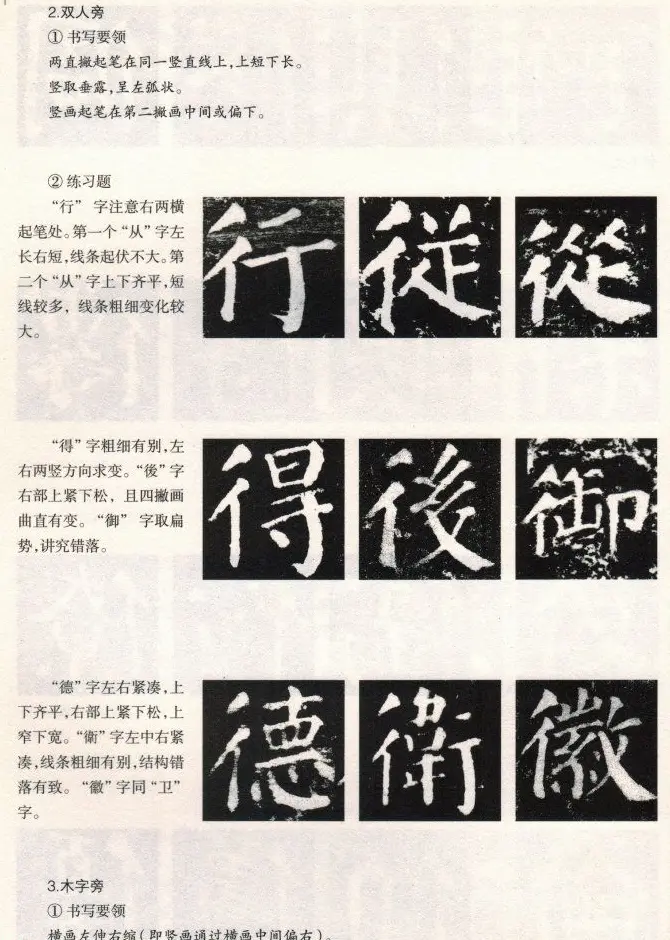 2.双人旁
① 书写要领
两直撇起笔在同一竖直线上,上短下长。
竖取垂露,呈左弧状。
竖画起笔在第二撇画中间或偏下。
② 练习题
“行” 字注意右两横
起笔处。第一个“从”字左
长右短,线条起伏不大。第
二个“从”字上下齐平,短
线较多，线条粗细变化较
大。
行 従 從
“得”字粗细有别,左
右两竖方向求变。“後”字
右部上紧下松，且四撇画
曲直有变。“御” 字取扁
势,讲究错落。
得 後 御
“德”字左右紧凑,上
下齐平,右部上紧下松,上
窄下宽。“衛”字左中右紧
凑,线条粗细有别,结构错
落有致。“徽”字同“卫”
字。
德 衛 徽
3.木字旁
① 书写要领
横画左伸右缩(即竖画通过横画中间偏右)。